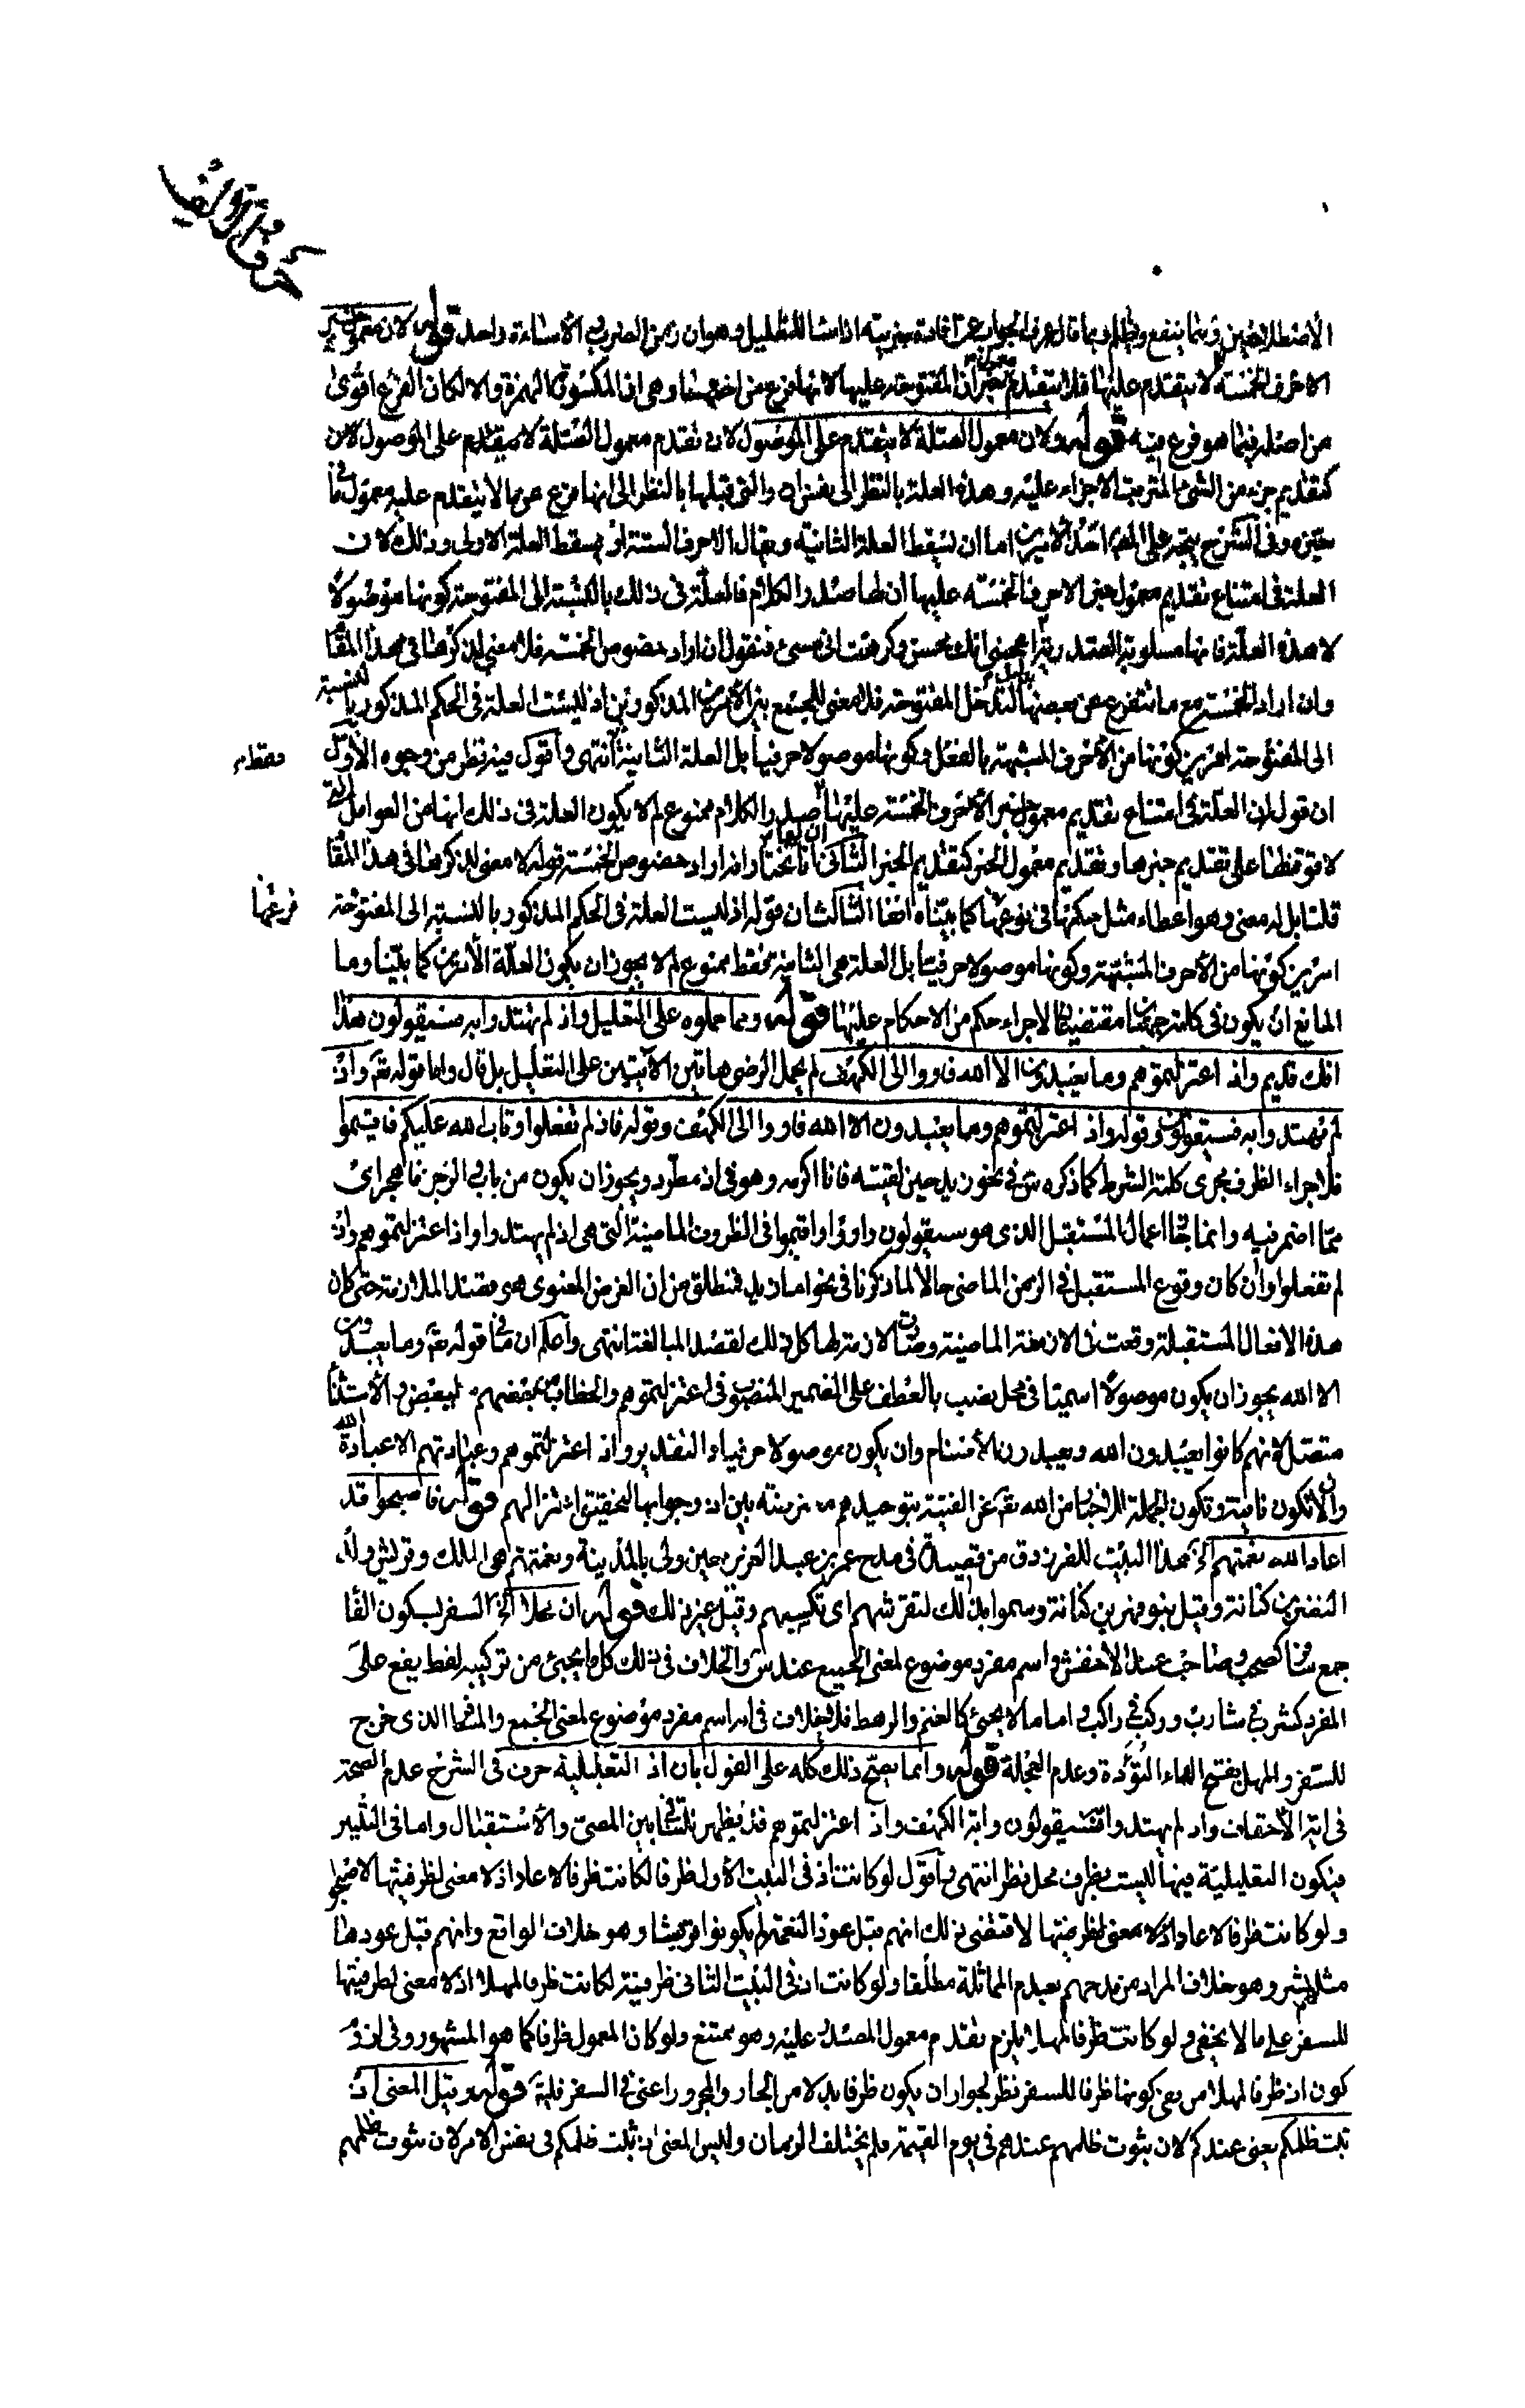 الاحرف الخمسة لا يتقدم عليها فلا يتقدم معمول خبر ان المفتوحة عليها لانها فرع من اختها وهى ان المكسورة الهمزة والا لكان الفرع اقوى
من اصله فيما هو فرع فيه قوله ولان معمول الصلة لا يتقدم على الموصول لان تقدم معمول الصلة كا على الموصول لان
كتقديم جزء من الشئ المترتب الاجزاء عليه وهذه العلة بالنظر الى نفس ان والتى قبلها بالنظر الى انها فرع عن ما لا يتقدم عليه معمول ما فى
حيزه وفى الشرح يتجه على المص احد الامرين اما ان يسقط العلة الثانية ويقال الاحرف الستة او يسقط العلة الاولى وذلك لان
العلة فى امتناع تقديم معمول خبر الاحرف الخمسة عليها ان لها صدر الكلام فالعلة فى ذلك بالنسبة الى المفتوحة كونها موصولا
لا هذه العلة فانها مسلوبة الصدرية يعجبنى انك محسن وكرهت انى مسئ فنقول ان اراد خصوص الخمسة فلا معنى لذكرها فى هذا المقا
وان اراد الخمسة مع ما تتفرع عن بعضها لتدخل المفتوحة فلا معنى للجمع بين الامرين المذكورين اذ ليست العلة فى الحكم المذكور بالنسبة
الى المفتوحة امرين كونها من الاحرف المشبهة بالفعل وكونها موصولا حرفيا بل العلة الثانية انتهى واقول فيه نظر من وجوه الاول
ان قوله ان العلة فى امتناع تقديم معمول خبر الاحرف الخمسة عليها صدر الكلام ممنوع لم لا يكون العلة فى ذلك انها من العوامل التى
لا قوة لها على تقديم خبرها وتقديم معمول الخبر كتقديم الخبر الثانى انا نختار انه اراد خصوص الخمسة قوله لا معنى لذكرها فى هذا المقا
قلت بل له معنى وهو اعطاء مثل حكمها فى فرعها كما بيناه انفا الثالث ان قوله اذ ليست العلة فى الحكم المذكور بالنسبة الى المفتوحة
امرين كونها من الاحرف المشبهة وكونها موصولا حرفيا بل العلة هى الثانية فقط ممنوع لم لا يجوز ان يكون العلة الامرين كما بينا وما
المانع ان يكون فى كلمة جهتان مقتضيتان لاجراء حكم من الاحكام عليها قوله ومما حملوه على التعليل واذ لم يهتدوا به فسيقولون هذا
افك قديم واذ اعتزلتموهم وما يعبدون الا الله فاووا الى الكهف لم يحمل الرضى هاتين الآيتين على التعليل بل قال واما قوله تعـ واذ
لم يهتدوا به فسيقولون وقوله واذ اعتزلتموهم وما يعبدون الا الله فاووا الى الكهف وقوله فاذ لم تفعلوا وتاب الله عليكم فاقيموا
فلاجراء الظرف مجرى كلمة الشرط كما ذكره س فى نحو زيد حين لقيته فانا اكرمه وهو فى اذ مطرد ويجوز ان يكون من باب والرجز فاهجر اى
مما اضمر فيه وانما جاز اعمال المستقبل الذى هو سيقولون وفاووا واقيموا فى الظروف الماضية التى هى اذ لم يهتدوا واذ اعتزلتموهم واذ
لم تفعلوا وان كان وقوع المستقبل فى الزمن الماضى محالا لما ذكرنا فى نحو اما زيد فمنطلق من ان الغرض المعنوى هو قصد الملازمة حتى كان
هذه الافعال المستقبلة وقعت فى الازمنة الماضية وصارت لازمة لها كل ذلك لقصد المبالغة انتهى واعلم ان ما فى قوله تعـ وما يعبدون
الا الله يجوز ان يكون موصولا اسميا فى محل نصب بالعطف على الضمير المنصوب فى اعتزلتموهم والخطاب من بعضهم لبعض والاستثناء
متصل لانهم كانوا يعبدون الله ويعبدون الاصنام وان يكون موصولا حرفيا والتقدير واذ اعتزلتموهم وعبادتهم الا عبادة الله
وان لا تكون نافية وتكون الجملة اخبارا من الله تعـ عن الفتية بتوحيدهم معترضة بين اذ وجوابها لتحقيق اعتزالهم قوله فاصبحوا قد
اعاد الله نعمتهم الخ هذا البيت للفرزدق من قصيدة فى مدح عمر بن عبد العزيز حين ولى بالمدينة ونعمتهم هى الملك وقريش ولد
النضر بن كنانة وقيل بنو فهر بن كنانة وسموا بذلك لتقرشهم اى تكسبهم وقيل غير ذلك قوله ان محلا الخ السفر بسكون الفا
جمع سافر كصحب وصاحب عند الاخفش واسم مفرد موضوع لمعنى الجميع عند س والخلاف فى ذلك كل ما يجئ من تركيبه لفظ يقع على
المفرد كشرب فى شارب وركب فى راكب واما ما لا يجئ كالغنم والرهط فلا خلاف فى انه اسم مفرد موضوع لمعنى الجمع والمسافر الذى خرج
للسفر والمهل بفتح الهاء التؤدة وعدم العجلة قوله وانما يصح ذلك كله على القول بان اذ التعليلية حرف فى الشرح عدم الصحة
فى اية الاحقاف واذ لم يهتدوا فسيقولون واية الكهف واذ اعتزلتموهم قد يظهر للتنافى بين المضى والاستقبال واما فى البيتين
فيكون التعليلية فيها ليست بظرف محل نظر انتهى واقول لو كانت اذ فى البيت الاول ظرفا لكانت ظرفا لاعاد اذ لا معنى لظرفيتها لاصبحوا
ولو كانت ظرفا لاعاد اذ لا معنى لظرفيتها لاقتضى ذلك انهم قبل عود النعمة لم يكونوا قريشا وهو خلاف الواقع وانهم قبل عودها
مثلهم بشر وهو خلاف المراد من مدحهم بعدم المماثلة مطلقا ولو كانت اذ فى البيت الثانى ظرفية لكانت ظرفا لمهلا اذ لا معنى لظرفيتها
للسفر على ما لا يخفى ولو كانت ظرفا لمهلا يلزم تقدم معمول المصدر عليه وهو ممتنع ولو كان المعمول ظرفا كما هو المشهور وفى لزوم
كون اذ ظرفا لمهلا من نفى كونها ظرفا للسفر نظر لجواز ان يكون ظرفا بدلا من الجار والمجرور اعنى فى السفر فليتـ قوله وقيل المعنى اذ
ثبت ظلمكم يعنى عندكم لان ثبوت ظلمهم عندهم فى يوم القيمة فلم يختلف الزمان وليس المعنى اذ ثبت ظلمكم فى نفس الامر لان ثبوت ظلمهم